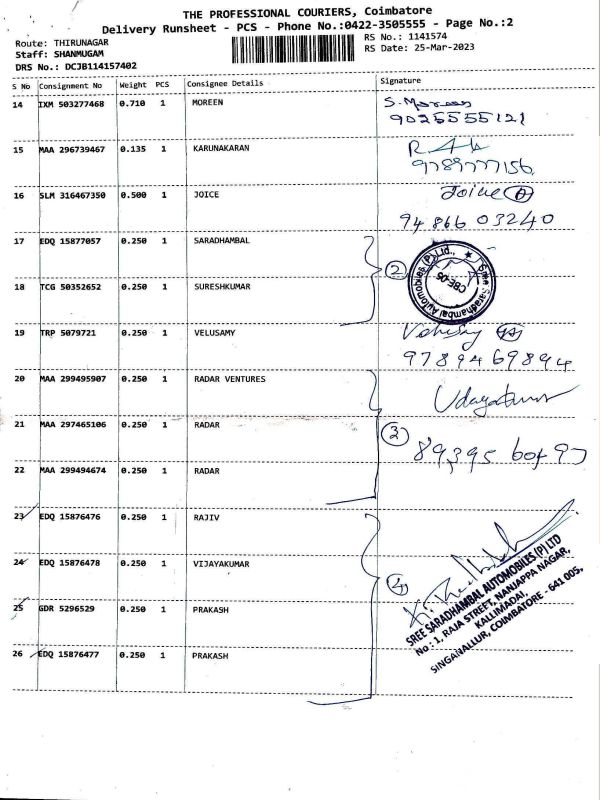 THE PROFESSIONAL COURIERS, Coimbatore
Delivery Runsheet - PCS - Phone No.:0422-3505555 - Page No.:2
Route: THIRUNAGAR
RS No.: 1141574
Staff: SHANMUGAM
RS Date: 25-Mar-2023
DRS No.: DCJB114157402
S No Consignment No Weight PCS Consignee Details Signature
14 IXM 503277468 0.710 1 MOREEN S. Moreen
9025555121
15 MAA 296739467 0.135 1 KARUNAKARAN
9789777156
16 SLM 316467350 0.500 1 JOICE Joice
94 866 03240
17 EDQ 15877057 0.250 1 SARADHAMBAL
2
Sree Saradhambal Automobiles (P) Ltd.,
CBE-05
18 TCG 50352652 0.250 1 SURESHKUMAR
19 TRP 5079721 0.250 1 VELUSAMY
97894 69894
20 MAA 299495907 0.250 1 RADAR VENTURES
Udayakumar
21 MAA 297465106 0.250 1 RADAR
3
89395 60497
22 MAA 299494674 0.250 1 RADAR
23 EDQ 15876476 0.250 1 RAJIV
24 EDQ 15876478 0.250 1 VIJAYAKUMAR
4
25 GDR 5296529 0.250 1 PRAKASH
26 EDQ 15876477 0.250 1 PRAKASH
SREE SARADHAMBAL AUTOMOBILES (P) LTD
No : 1, RAJA STREET, NANJAPPA NAGAR,
KALLIMADAI,
SINGANALLUR, COIMBATORE - 641 005.